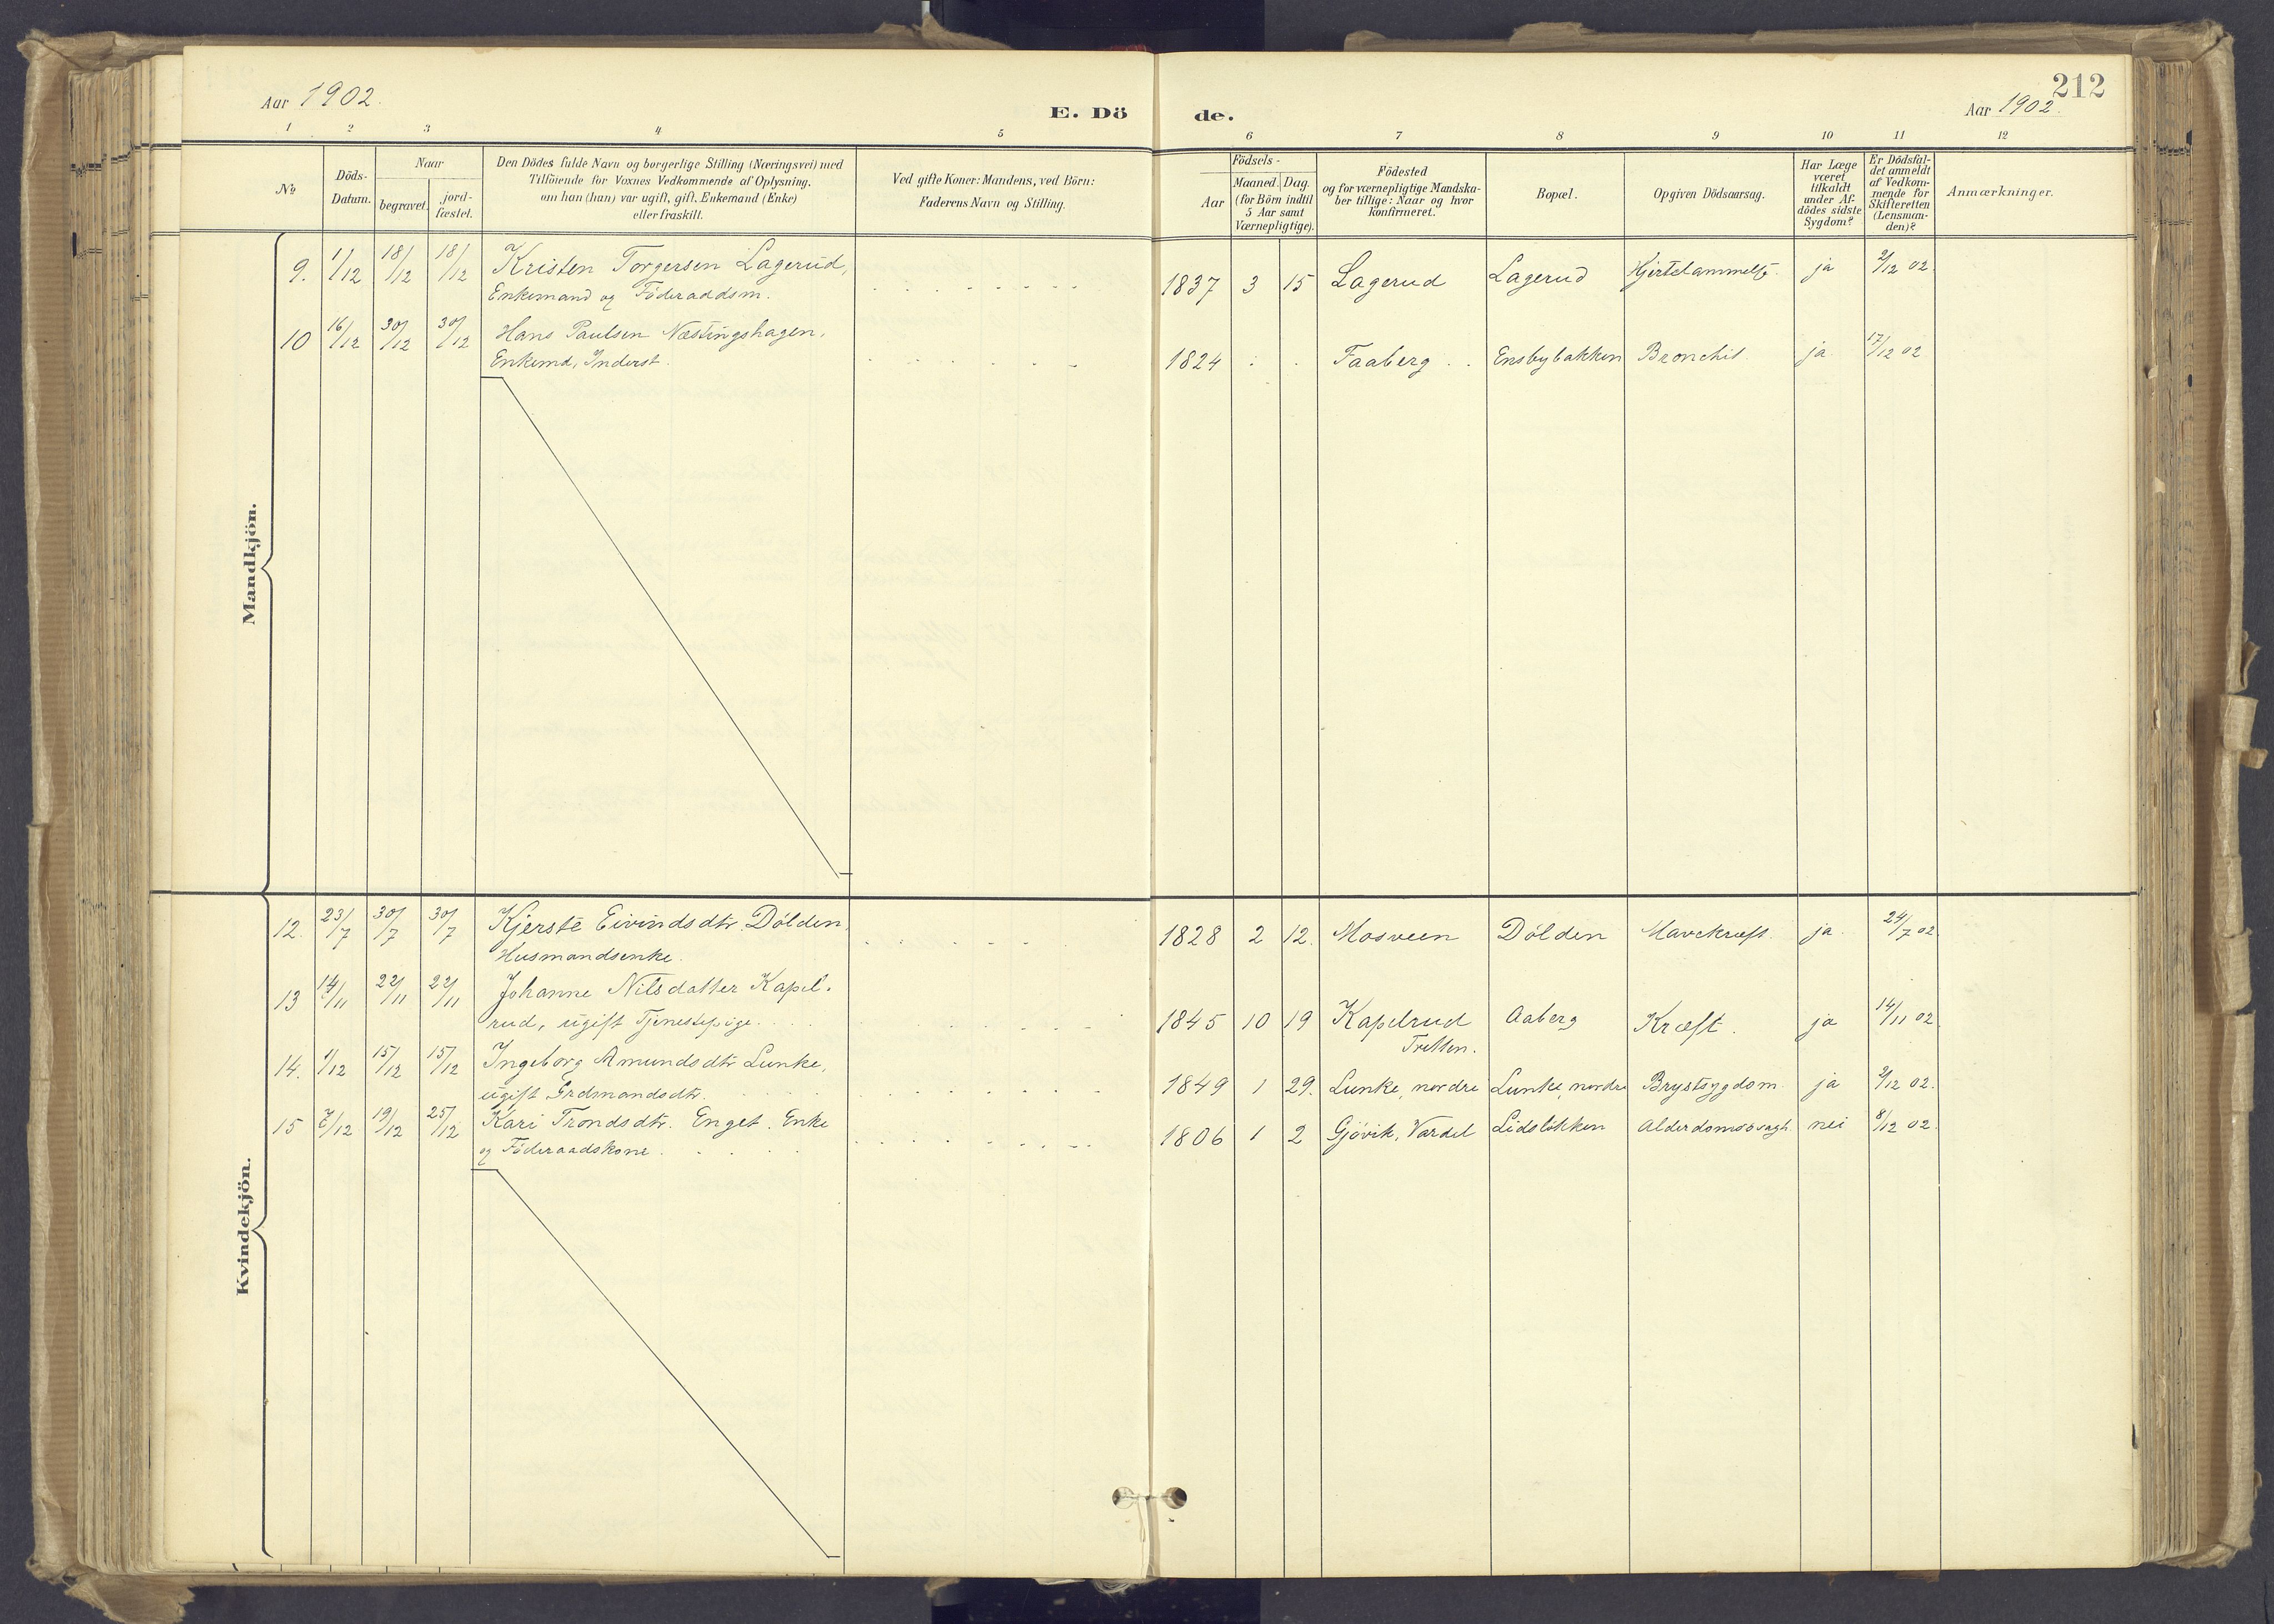 212
Aar 1902.
E. Dö de.
Aar 1902.
1 2 3 4 5 6 7 8 9 10 11 12
№
Döds-
Datum.
Naar
begravet.
jord-
fæstet.
Den Dödes fulde Navn og borgerlige Stilling (Næringsvei) med
Tilföiende for Voxnes Vedkommende af Oplysning,
om han (hun) var ugift, gift, Enkemand (Enke)
eller fraskilt.
Ved gifte Koner: Mandens, ved Börn:
Faderens Navn og Stilling.
Födsels-
Aar
Maaned. Dag.
(for Börn indtil
5 Aar samt
Værnepligtige).
Födested
og for værnepligtige Mandska-
ber tillige: Naar og hvor
konfirmeret.
Bopæl.
Opgiven Dödsaarsag.
Har Læge
været
tilkaldt
under Af-
dödes sidste
Sygdom?
Er Dödsfal-
det anmeldt
af Vedkom-
mende for
Skifteretten
(Lensman-
den)?
Anmærkninger.
Mandkjön.
9. 1/12 18/12 18/12 Kristen Torgersen Lagerud, 1837 3 15 Lagerud Lagerud ja 2/12 02.
Enkemand og Föderaadsm.
10 16/12 30/12 30/12 Hans Paulsen Næstingshagen, 1824 Faaberg Ensbybakken Bronchit ja 17/12 02
Enkemd, Inderst.
Kvindekjön.
12. 23/7 30/7 30/7 Kjersté Eivindsdtr. Dölden, 1828 2 12. Mosveen Dölden Mavekræft. ja 24/7 02.
Husmandsenke.
13 14/11 22/11 22/11 Johanne Nilsdatter Kapel-
rud, ugift Tjenestepige. 1845 10 19 Kapelrud Aaberg Kræft. ja 14/11 02.
Tretten.
14. 1/12 15/12 15/12 Ingeborg Amundsdtr Lunke, 1849 1 29. Lunke, nordre Lunke, nordre Brystsygdom ja 2/12 02.
ugift Grdmandsdtr.
15 7/12 19/12 25/12 Kari Trondsdtr. Enget. Enke 1806 1 2 Gjövik, Vardal Lidslökken Alderdomssvagh. nei 8/12 02.
og Föderaadskone.